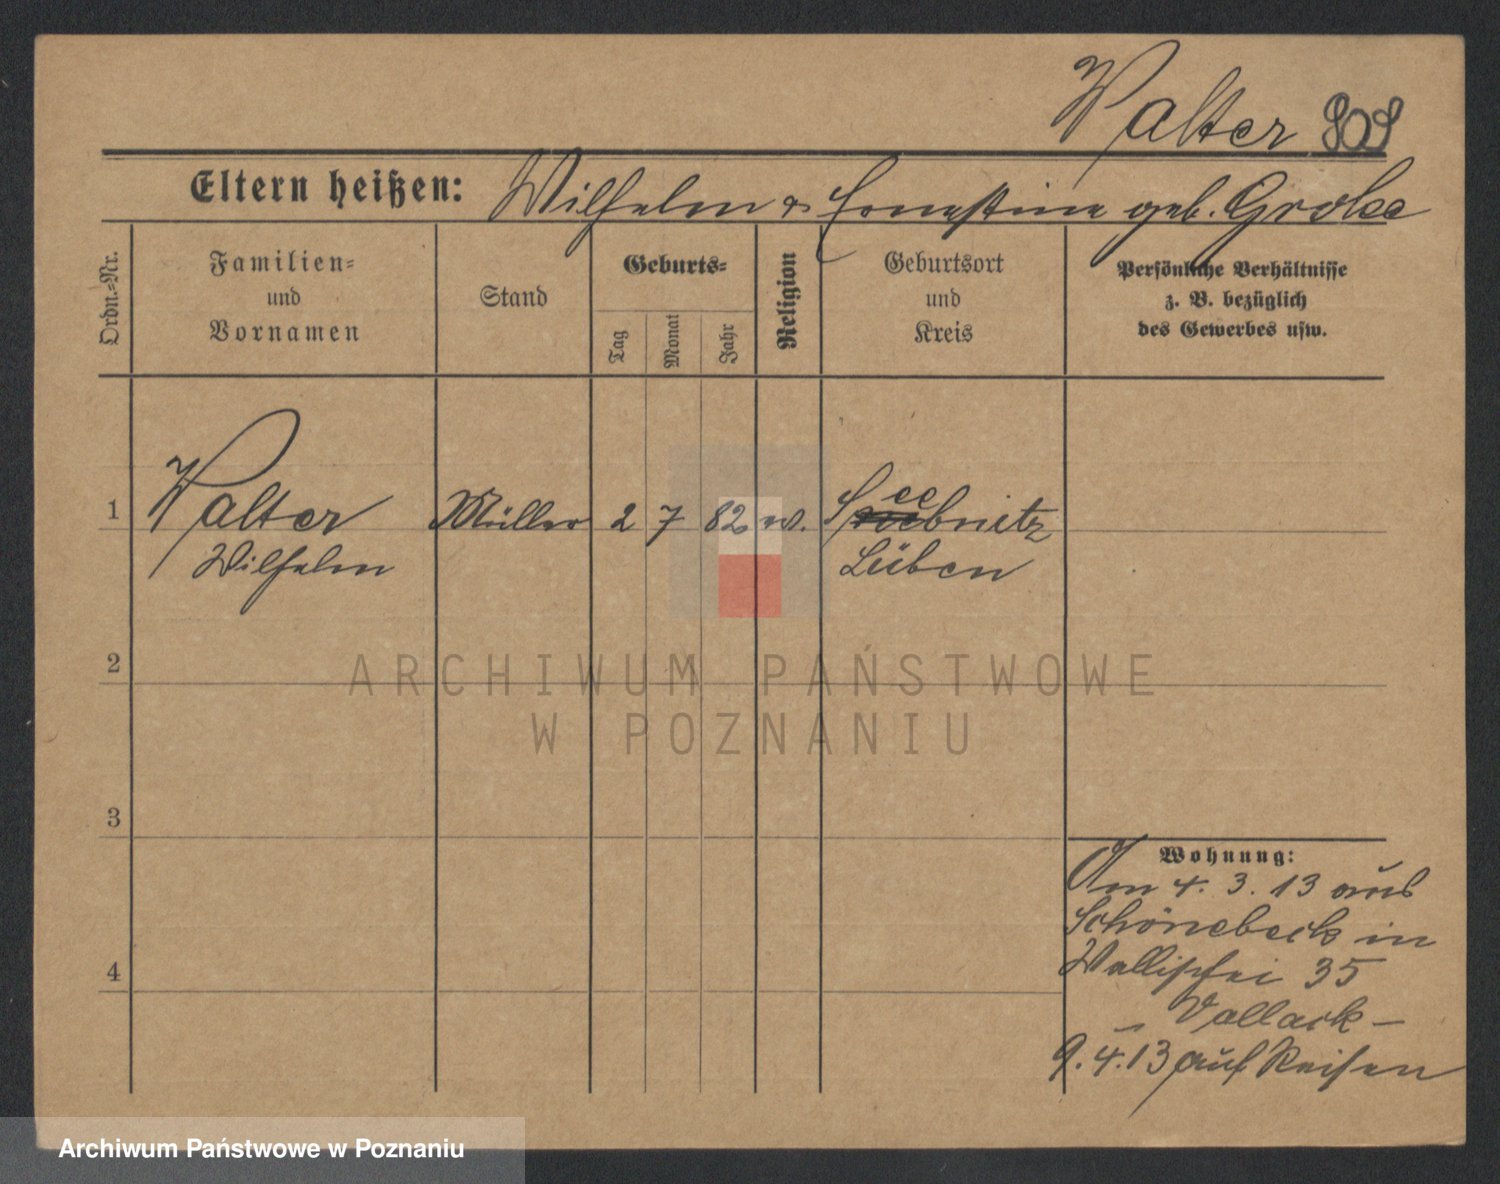 Walter 809
Eltern heißen: Wilhelm & Ernestine geb. Grolee
Ordn.-Nr.
Familien-
und
Vornamen
Stand
Geburts-
Tag
Monat
Jahr
Religion
Geburtsort
und
Kreis
Persönliche Verhältnisse
z. B. bezüglich
des Gewerbes usw.
1 Walter Müller 2 7 82 ev. Seebnitz
Wilhelm Lüben
2
3
4
Wohnung:
Am 4. 3. 13 aus
Schönebeck in
Wallischei 35
9. 4. 13 auf Reisen
ARCHIWUM PAŃSTWOWE
W POZNANIU
Archiwum Państwowe w Poznaniu